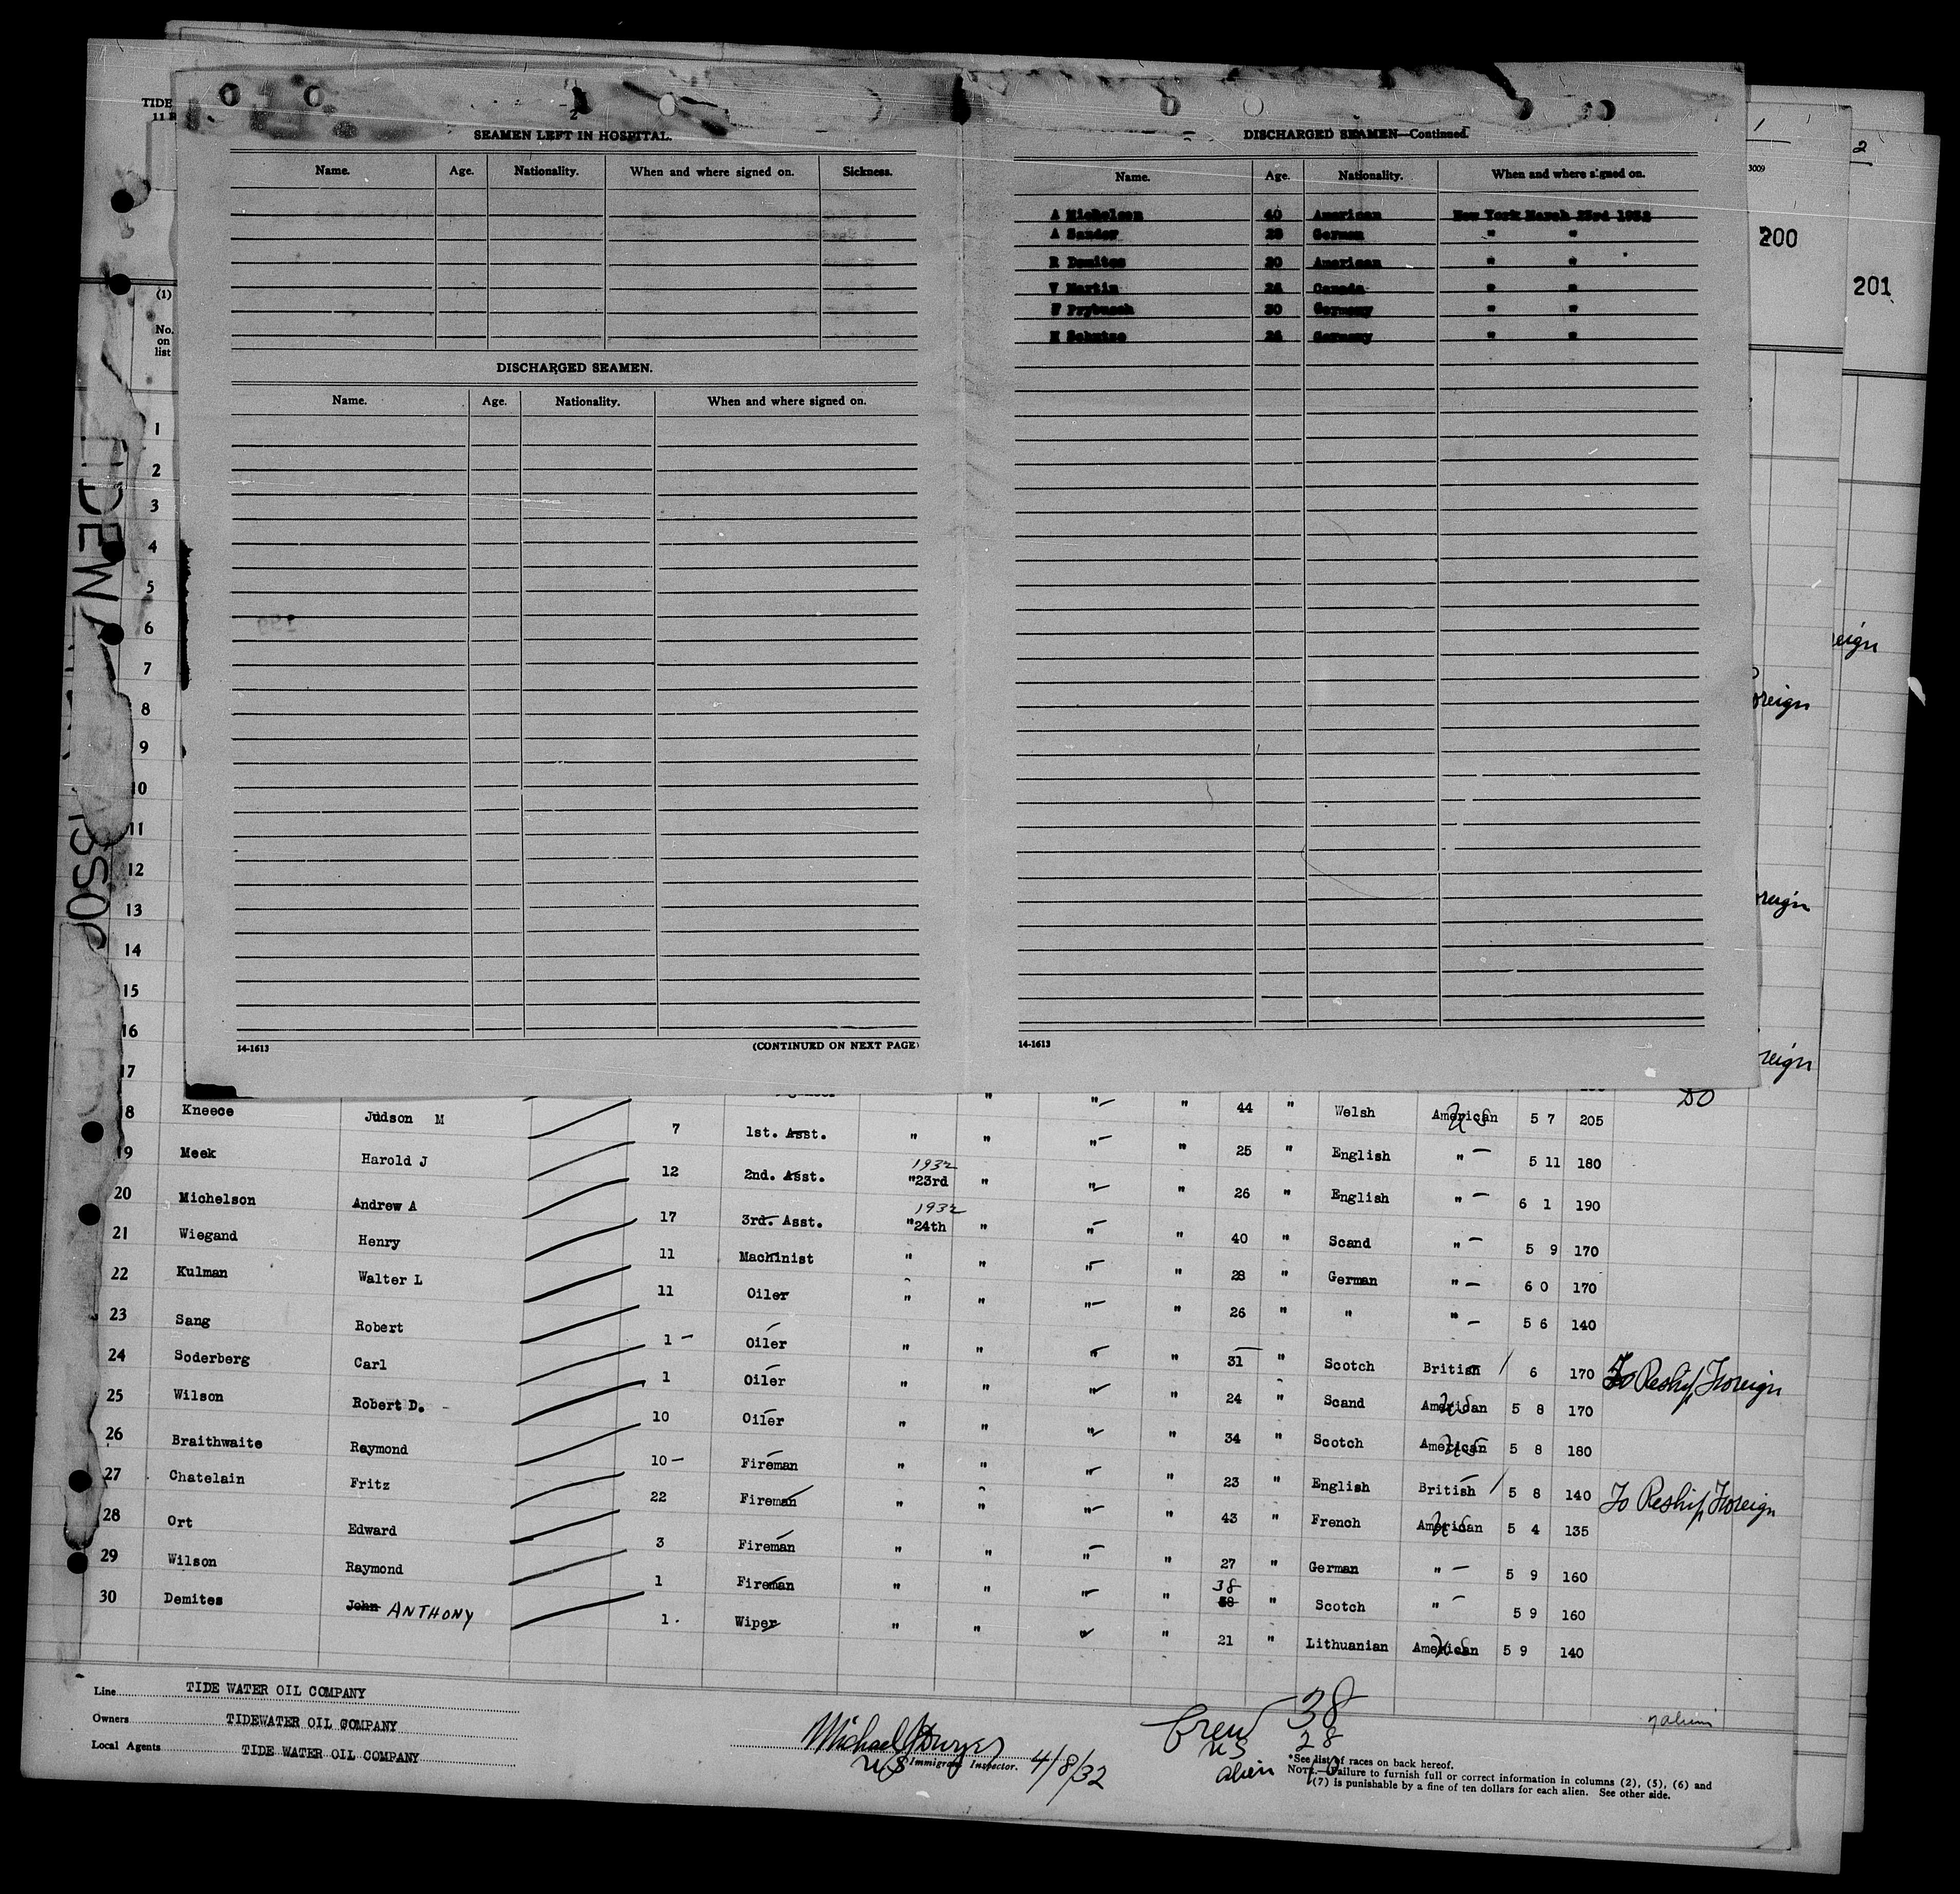 TIDE
SEAMEN LEFT IN HOSPITAL.
Name. Age. Nationality. When and where signed on. Sickness.
DISCHARGED SEAMEN.
Name. Age. Nationality. When and where signed on.
14-1613 (CONTINUED ON NEXT PAGE)
DISCHARGED SEAMEN—Continued.
Name. Age. Nationality. When and where signed on.
A Michelson 40 American New York March 23rd 1932
A Sander 28 German " "
R Demites 20 American " "
V Martin 26 Canada " "
F Prybusch 30 Germany " "
K Schutze 26 Germany " "
14-1613
1
3009
200
2
201
eign
oreign
oreign
reign
(1)
No. on list
1
2
3
4
5
6
7
8
9
10
11
12
13
14
15
16
17
8 Kneece Judson M 7 1st. Asst. " " " " 44 " Welsh American US 5 7 205
19 Meek Harold J 12 2nd. Asst. 1932 "23rd " " " 25 " English " 5 11 180
20 Michelson Andrew A 17 3rd. Asst. 1932 "24th " " " 26 " English " 6 1 190
21 Wiegand Henry 11 Machinist " " " " 40 " Scand " 5 9 170
22 Kulman Walter L 11 Oiler " " " " 28 " German " 6 0 170
23 Sang Robert 1 Oiler " " " " 26 " " " 5 6 140
24 Soderberg Carl 1 Oiler " " " " 31 " Scotch British 6 170 To Reship Foreign
25 Wilson Robert D. 10 Oiler " " " " 24 " Scand American US 5 8 170
26 Braithwaite Raymond 10 Fireman " " " " 34 " Scotch American US 5 8 180
27 Chatelain Fritz 22 Fireman " " " " 23 " English British 5 8 140 To Reship Foreign
28 Ort Edward 3 Fireman " " " " 43 " French American US 5 4 135
29 Wilson Raymond 1 Fireman " " " " 27 " German " 5 9 160
30 Demites John ANTHONY 1 Wiper " " " " 38 58 " Scotch " 5 9 160
21 " Lithuanian American US 5 9 140
Line TIDE WATER OIL COMPANY
Owners TIDEWATER OIL COMPANY
Local Agents TIDE WATER OIL COMPANY
US Immigrant Inspector. 4/8/32
Crew 38
US 28
alien 10
*See list of races on back hereof.
NOTE.—Failure to furnish full or correct information in columns (2), (5), (6) and (7) is punishable by a fine of ten dollars for each alien. See other side.